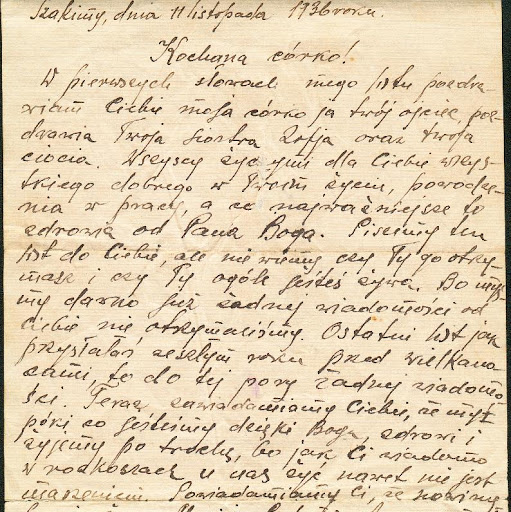 Szakiny, dnia 11 listopada 1936 roku.
Kochana córko!
W pierwszych słowach mego listu pozdra-
wiam Ciebie moja córko ja twój ojciec, poz-
drawia Twoja siostra Zofja oraz twoja
ciocia. Wszyscy życzymy dla Ciebie wszys-
tkiego dobrego w Twoim życiu, powodze-
nia w pracy, a co najważniejsze to
zdrowia od Pana Boga. Piszemy ten
list do Ciebie, ale nie wiemy czy Ty go otrzy-
masz i czy Ty ogóle jesteś żywa. Bo my
my dawno już żadnej wiadomości od
Ciebie nie otrzymaliśmy. Ostatni list jak
przysłałaś zeszłym roku przed wielkano
cami, to do tej pory żadnej wiadomo
ści. Teraz zawiadamiamy Ciebie, że my
póki co jesteśmy dzięki Bogu, zdrowi i
żyjemy po trochu, bo jak Ci wiadomo
w rozkoszach u nas żyć nawet nie jest
marzeniem. Powiadamiamy Ci, że